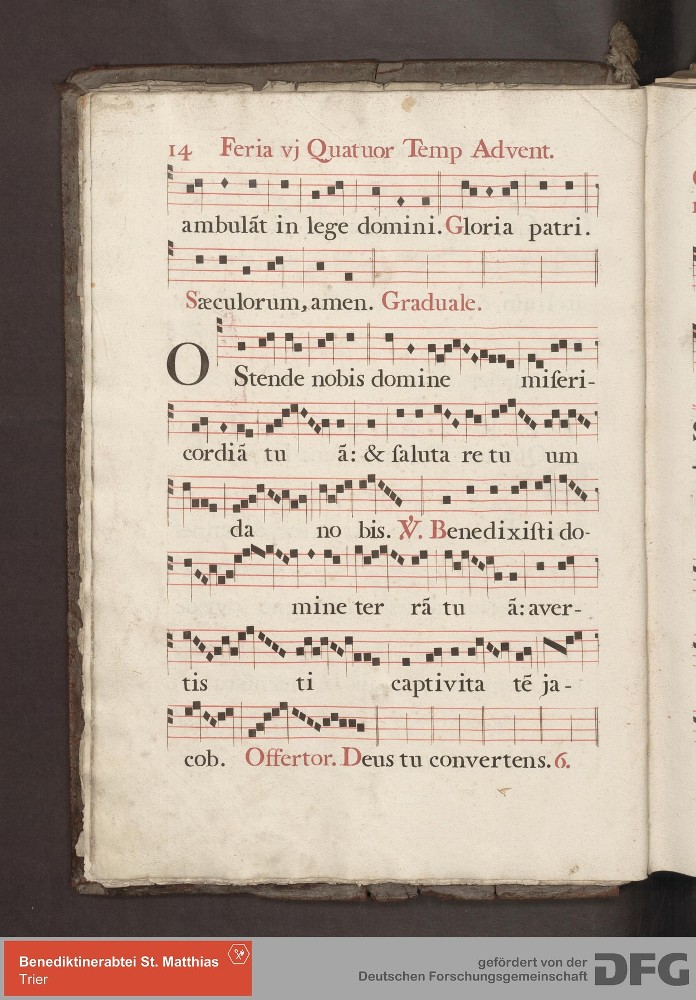 14 Feria vj Quatuor Temp Advent.
ambulãt in lege domini. Gloria patri.
Sæculorum, amen. Graduale.
OStende nobis domine miſeri-
cordiã tu ã: & ſaluta re tu um
da no bis. ℣. Benedixiſti do-
mine ter rã tu ã: aver-
tis ti captivita tẽ ja-
cob. Offertor. Deus tu convertens. 6.
Benediktinerabtei St. Matthias
Trier
gefördert von der
Deutschen Forschungsgemeinschaft DFG